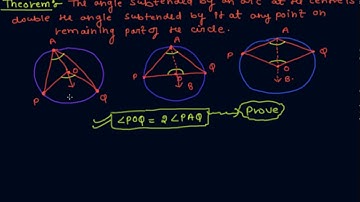 Theorem:- The angle subtended by an arc at the centre is
double the angle subtended by it at any point on
remaining part of the circle.
A A A
O
P Q P O Q P Q
B O
B
∠POQ = 2 ∠PAQ → Prove